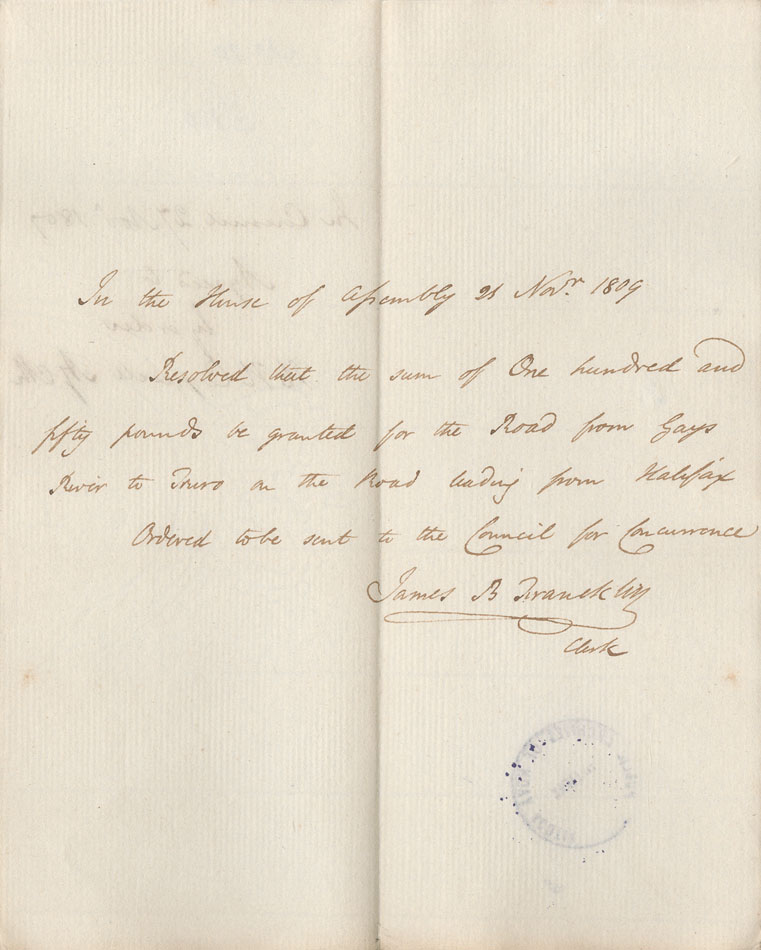 In the House of Assembly 21 Novr. 1809
Resolved that the sum of One hundred and
fifty pounds be granted for the Road from Gays
River to Truro on the Road leading from Halifax
Ordered to be sent to the Council for Concurrence
James B Francklin
Clerk